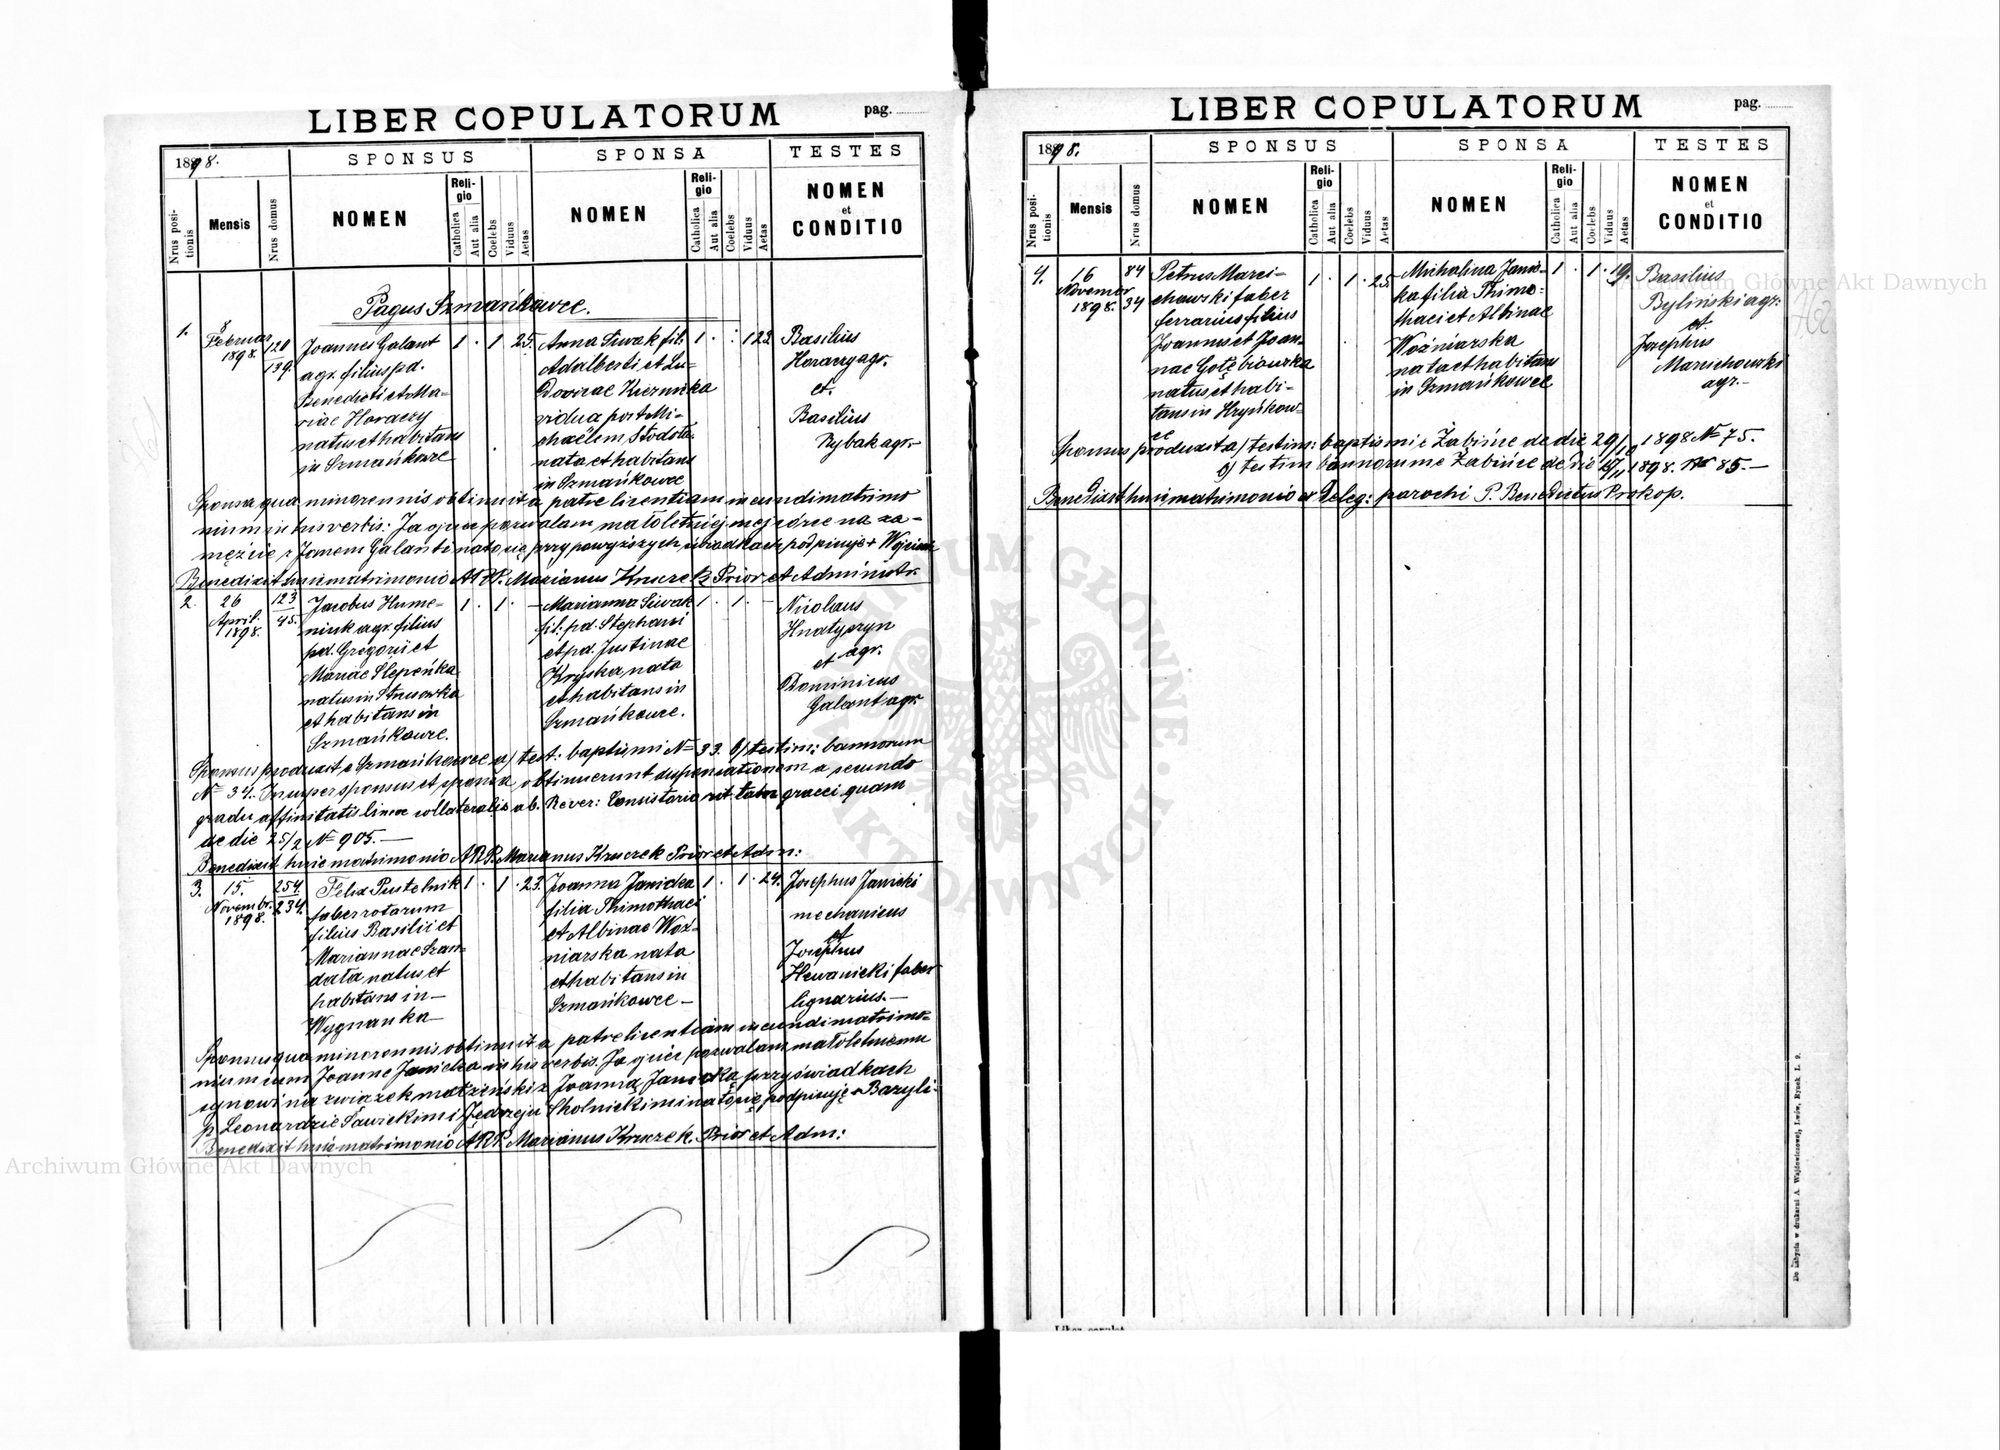 LIBER COPULATORUM
pag.
1898.
SPONSUS
SPONSA
TESTES
Nrus positionis
Mensis
Nrus domus
NOMEN
Religio
Catholica
Aut alia
Coelebs
Viduus
Aetas
NOMEN
Religio
Catholica
Aut alia
Coelebs
Viduus
Aetas
NOMEN
et
CONDITIO
Pagus Szmańkowce.
1.
8
Februar
1898.
120
139.
Joannes Galant
agr. filius pd.
Benedicti et Ma-
riae Horaczy
natus et habitans
in Szmańkowce
1 . 1 25.
Anna Siwak fil.
Adalberti et Lu-
dovicae Kiernicka
vidua post Mi-
chaëlem Stodoła
nata et habitans
in Szmańkowce
1 . : 1 22
Basilius
Horaczy agr.
et.
Basilius
Rybak agr.
Sponsa qua minorennis obtinuit a patre licentiam ineundi matrimo
nium in his verbis: Ja ojciec pozwalam małoletniej mej córce na za-
mężcie z Janem Galant i na to się przy powyższych świadkach podpisuję + Wojciech
Benedixit huic matrimonio A.R.P. Marianus Kruczek Prior et Administr.
2.
26
April.
1898.
123
45.
Jacobus Hume-
niuk agr. filius
pd. Gregorii et
Mariae Slepeńka
natus in Strusowka
et habitans in
Szmańkowce.
1 . 1 . -
Marianna Siwak
fil: pd. Stephani
et pd. Justinae
Kryska, nata
et habitans in
Szmańkowce.
1 . 1 . -
Nicolaus
Hnatyszyn
et agr.
Dominicus
Galant agr.
Sponsus produxit e Szmańkowce a) test: baptismi № 33. b) testim: bannorum
№ 34. Insuper sponsus et sponsa obtinuerunt dispensationem a secundo
gradu affinitatis lineae collateralis ab Rever: Consistorio rit tam graeci quam
de die 25/2 № 905.—
Benedixit huic matrimonio A.R.P. Marianus Kruczek Prior et Adm:
3.
15.
Novembr.
1898.
254.
234.
Felix Pustelnik
faber rotarum
filius Basilii et
Mariannae Szan-
data natus et
habitans in—
Wygnanka—
1 . 1 . 23.
Joanna Janicka
filia Thimothaei
et Albinae Woź-
niarska nata
et habitans in
Szmańkowce—
1 . 1 . 24.
Josephus Janicki
mechanicus
et
Josephus
Hewanicki faber
lignarius.—
Sponsus qua minorennis obtinuit a patre licentiam ineundi matrimo-
nium cum Joanne Janicka in his verbis. Ja ojciec pozwalam małoletniemu
synowi na związek małżeński z Joanną Janicką przy świadkach
p. Leonardzie Sawickim i Jędrzeju Skolnickim i na to się podpisuję + Bazyli.
Benedixit huic matrimonio A.R.P. Marianus Kruczek. Prior et Adm:
LIBER COPULATORUM
pag.
1898.
SPONSUS
SPONSA
TESTES
Nrus positionis
Mensis
Nrus domus
NOMEN
Religio
Catholica
Aut alia
Coelebs
Viduus
Aetas
NOMEN
Religio
Catholica
Aut alia
Coelebs
Viduus
Aetas
NOMEN
et
CONDITIO
4.
16
Novembr
1898.
84
34
Petrus Marci-
chowski faber
ferrarius filius
Joannis et Joan-
nae Gołębiowska
natus et habi-
tans in Hryńkow-
ce
1 . 1 . 25.
Michalina Janic-
ka filia Thimo-
thaei et Albinae
Woźniarska
nata et habitans
in Szmańkowce
1 . 1 . 19.
Basilius
Byliński agr.
et
Josephus
Marichowski
agr.—
Sponsus produxit a) testim: baptismi e Żabińce de die 29/10 1898 № 75.
b) testim bannorum e Żabińce de die 15/11 1898. № 85.—
Benedixit huic matrimonio ex deleg: parochi P. Benedictus Prokop.
Archiwum Główne Akt Dawnych
Archiwum Główne Akt Dawnych
ARCHIWUM GŁÓWNE AKT DAWNYCH
Do nabycia w drukarni A. Wajdowiczowej, Lwów, Rynek l. 9.
Liber copulat.